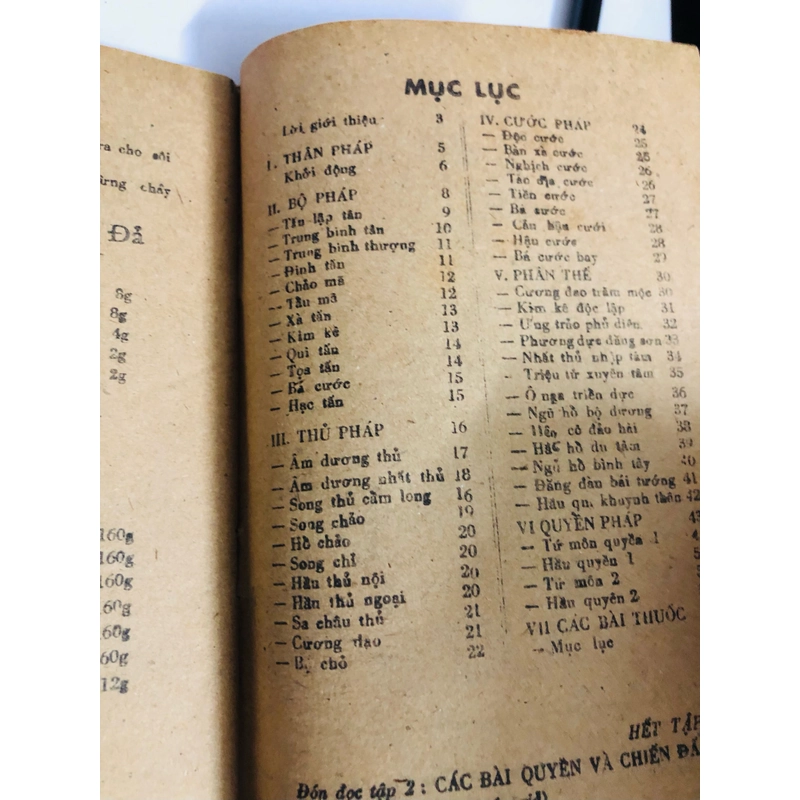 ra cho sôi
ừng chảy
Đả
8g
8g
4g
2g
2g
160g
160g
160g
60g
160g
60g
12g
MỤC LỤC
Lời giới thiệu 3
I. THÂN PHÁP 5
Khởi động 6
II. BỘ PHÁP 8
— Tấu lập tấn 9
— Trung bình tấn 10
— Trung bình thượng 11
— Đinh tấn 11
— Chảo mã 12
— Tẩu mã 12
— Xà tấn 13
— Kim kê 13
— Qui tấn 14
— Tọa tấn 14
— Bá cước 15
— Hạc tấn 15
III. THỦ PHÁP 16
— Âm dương thủ 17
— Âm dương nhất thủ 18
— Song thủ cầm long 16
— Song chảo 19
— Hồ chảo 20
— Song chỉ 20
— Hầu thủ nội 20
— Hầu thủ ngoại 20
— Sa châu thủ 21
— Cương đao 21
— chỏ 22
IV. CƯỚC PHÁP 24
— Độc cước 25
— Bàn xà cước 25
— Nghịch cước 26
— Tảo địa cước 26
— Tiền cước 27
— Bá cước 27
— Cẩu cưới 28
— Hậu cước 28
— Bá cước bay 29
V. PHÂN THẾ 30
— Cương đao trảm mộc 30
— Kim kê độc lập 31
— Ưng trảo phủ diên 32
— Phương dực đăng sơn 33
— Nhất thủ nhập tâm 34
— Triệu tử xuyên tâm 35
— Ô nga triển dực 36
— Ngũ hồ bộ dương 37
— cô đảo hải 38
— Hắc hổ du tâm 39
— Ngũ hồ bình tây 40
— Đăng đàn bái tướng 41
— Hầu khuynh thân 42
VI QUYỀN PHÁP 43
— Tứ môn quyền 1
— Hầu quyền 1
— Tứ môn 2
— Hầu quyền 2
VII CÁC BÀI THUỐC
— Mục lục
HẾT TẬP
Đón đọc tập 2 : CÁC BÀI QUYỀN VÀ CHIẾN ĐẤ